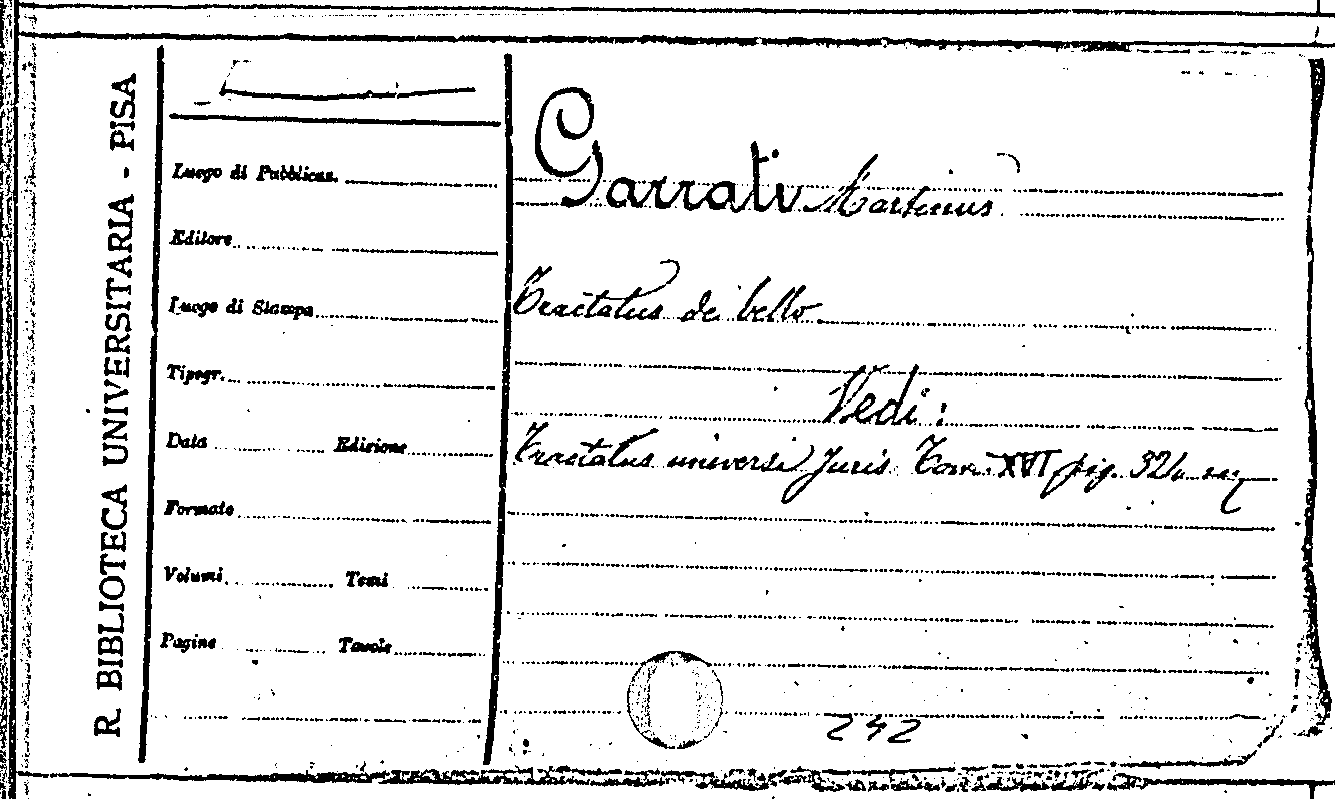 R. BIBLIOTECA UNIVERSITARIA - PISA
Luogo di Pubblicaz.
Editore
Luogo di Stampa
Tipogr.
Data Edizione
Formato
Volumi Tomi
Pagine Tavole
Garrati Martinus
Tractatus de bello
Vedi:
Tractatus universi Juris Tom. XVI pag. 324
242